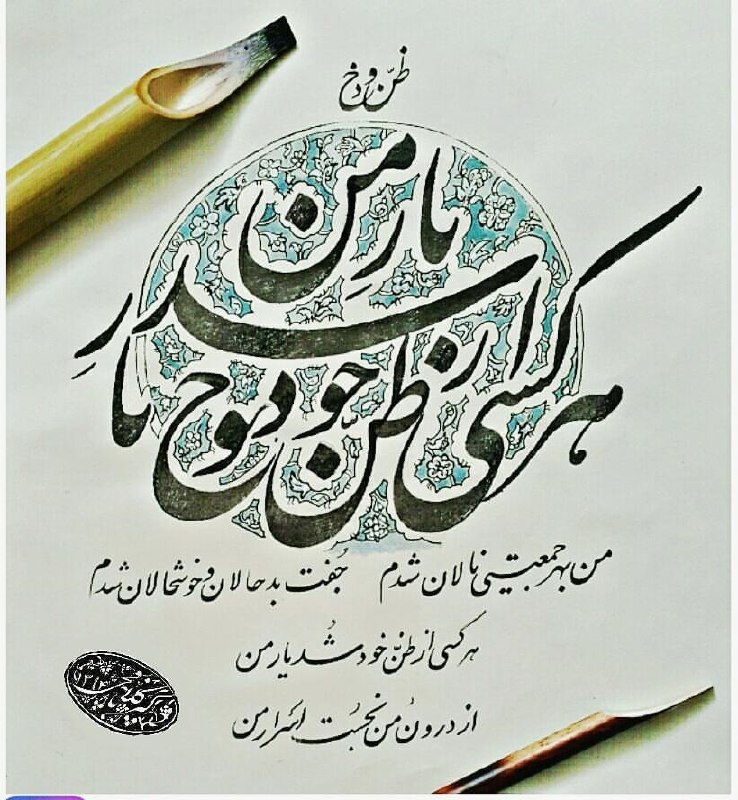 هر کسی از ظنّ خود شد یار من
من بهر جمعیتی نالان شدم جُفت بدحالان و خوشحالان شدم
هر کسی از ظنّ خود شُد یار من
از درونُ من نجُست اَسرار من